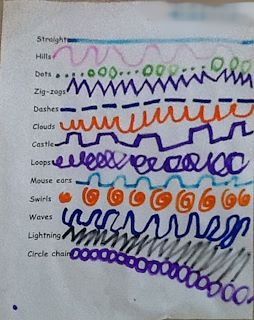 Straight
Hills
Dots
Zig-zags
Dashes
Clouds
Castle
Loops
Mouse ears
Swirls
Waves
Lightning
Circle chain